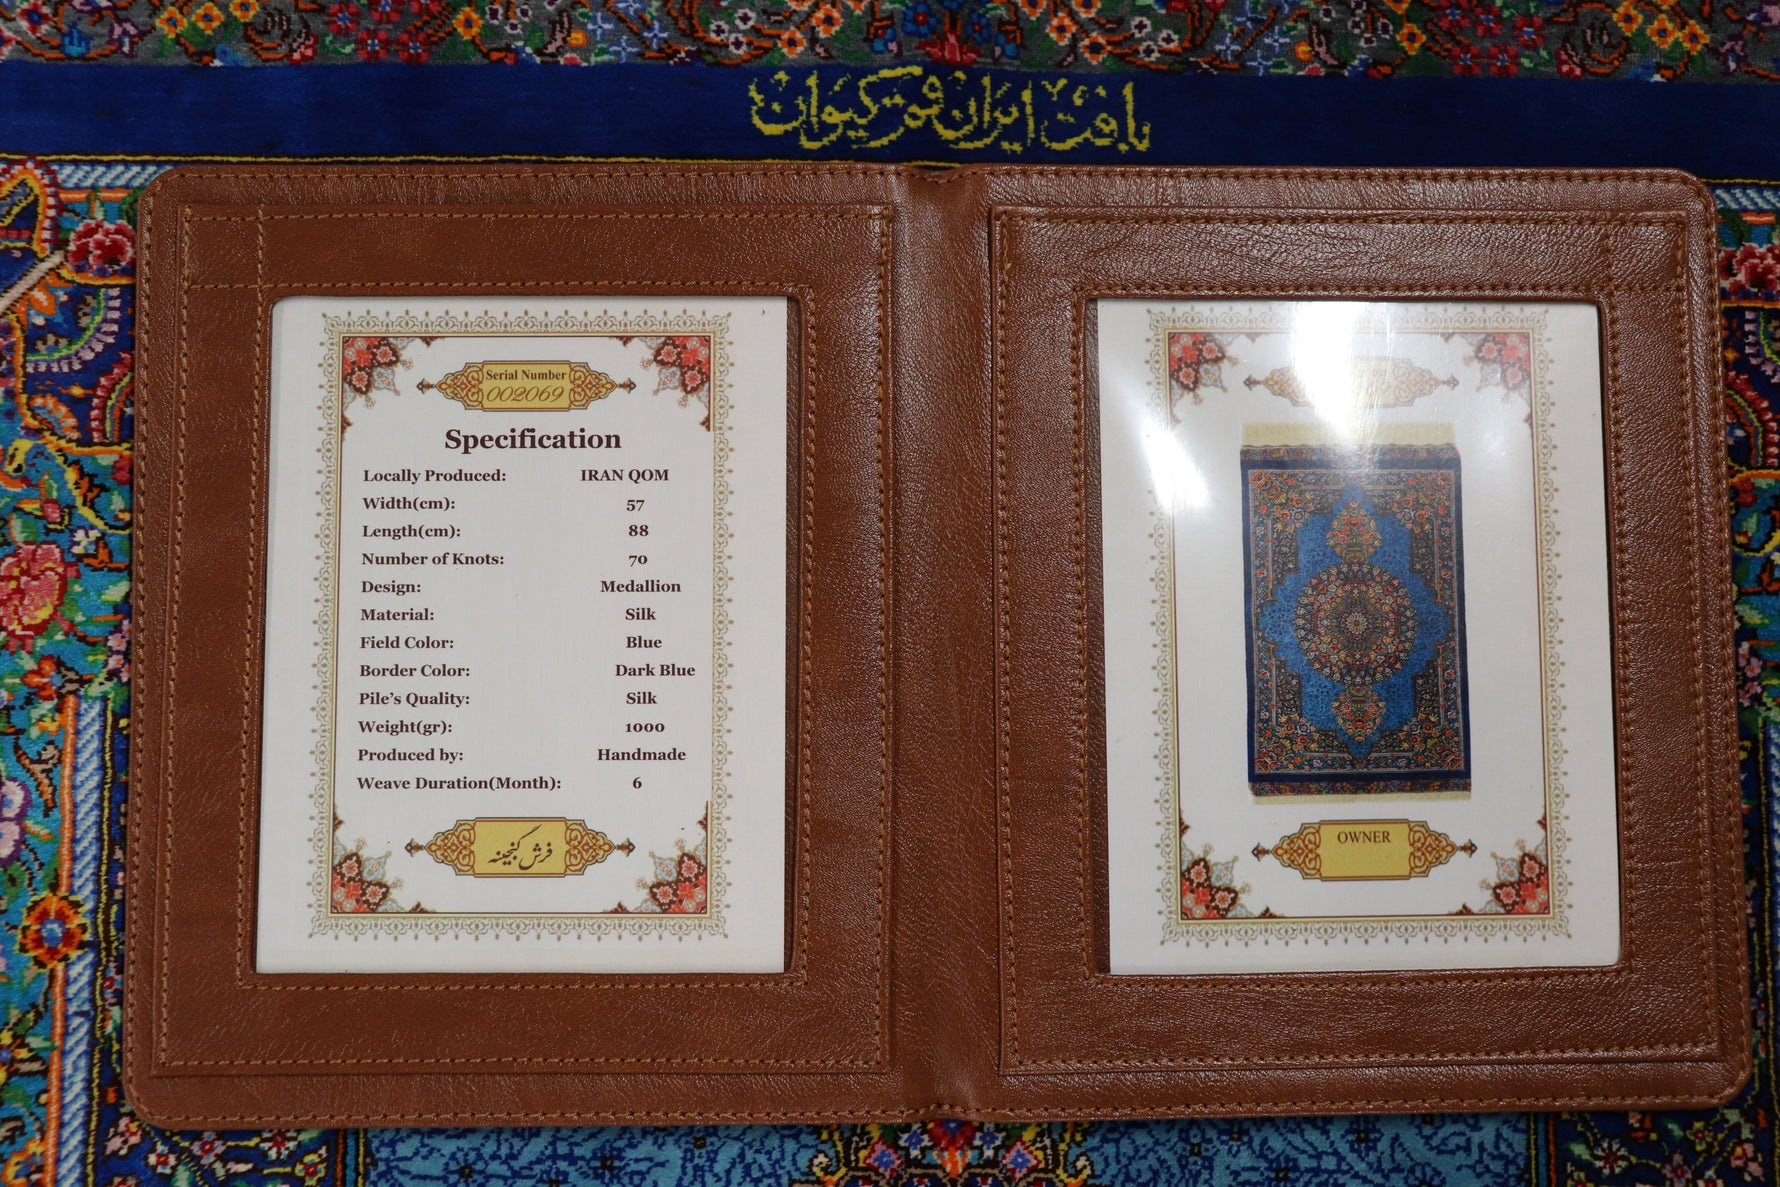 بافت ایران قم ترکیوان
Serial Number
002069
Specification
Locally Produced: IRAN QOM
Width(cm): 57
Length(cm): 88
Number of Knots: 70
Design: Medallion
Material: Silk
Field Color: Blue
Border Color: Dark Blue
Pile's Quality: Silk
Weight(gr): 1000
Produced by: Handmade
Weave Duration(Month): 6
فرش گنجینه
OWNER